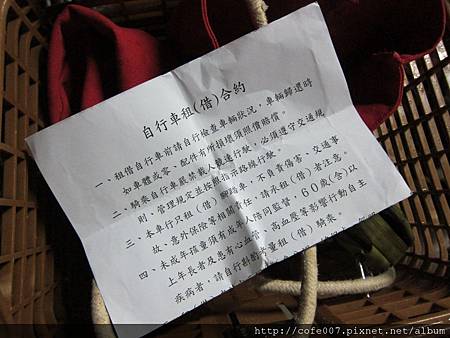 自行車租(借)合約
一、租借自行車前請自行檢查車輛狀況，車輛歸還時
如車體或零、配件有所損壞須照價賠償。
二、騎乘自行車嚴禁載人競速行駛，必須遵守交通規
則、管理規定並按標示路線行駛。
三、本車行只租(借)腳踏車，不負責傷害、交通事
故、意外保險等相關責任，請承租(借)者注意。
四、未成年孩童須有成人陪同監督，60歲(含)
上年長者及患有心血管、高血壓等影響行動自主
疾病者，請自行斟酌不量租(借)騎乘。
http://cofe007.pixnet.net/album